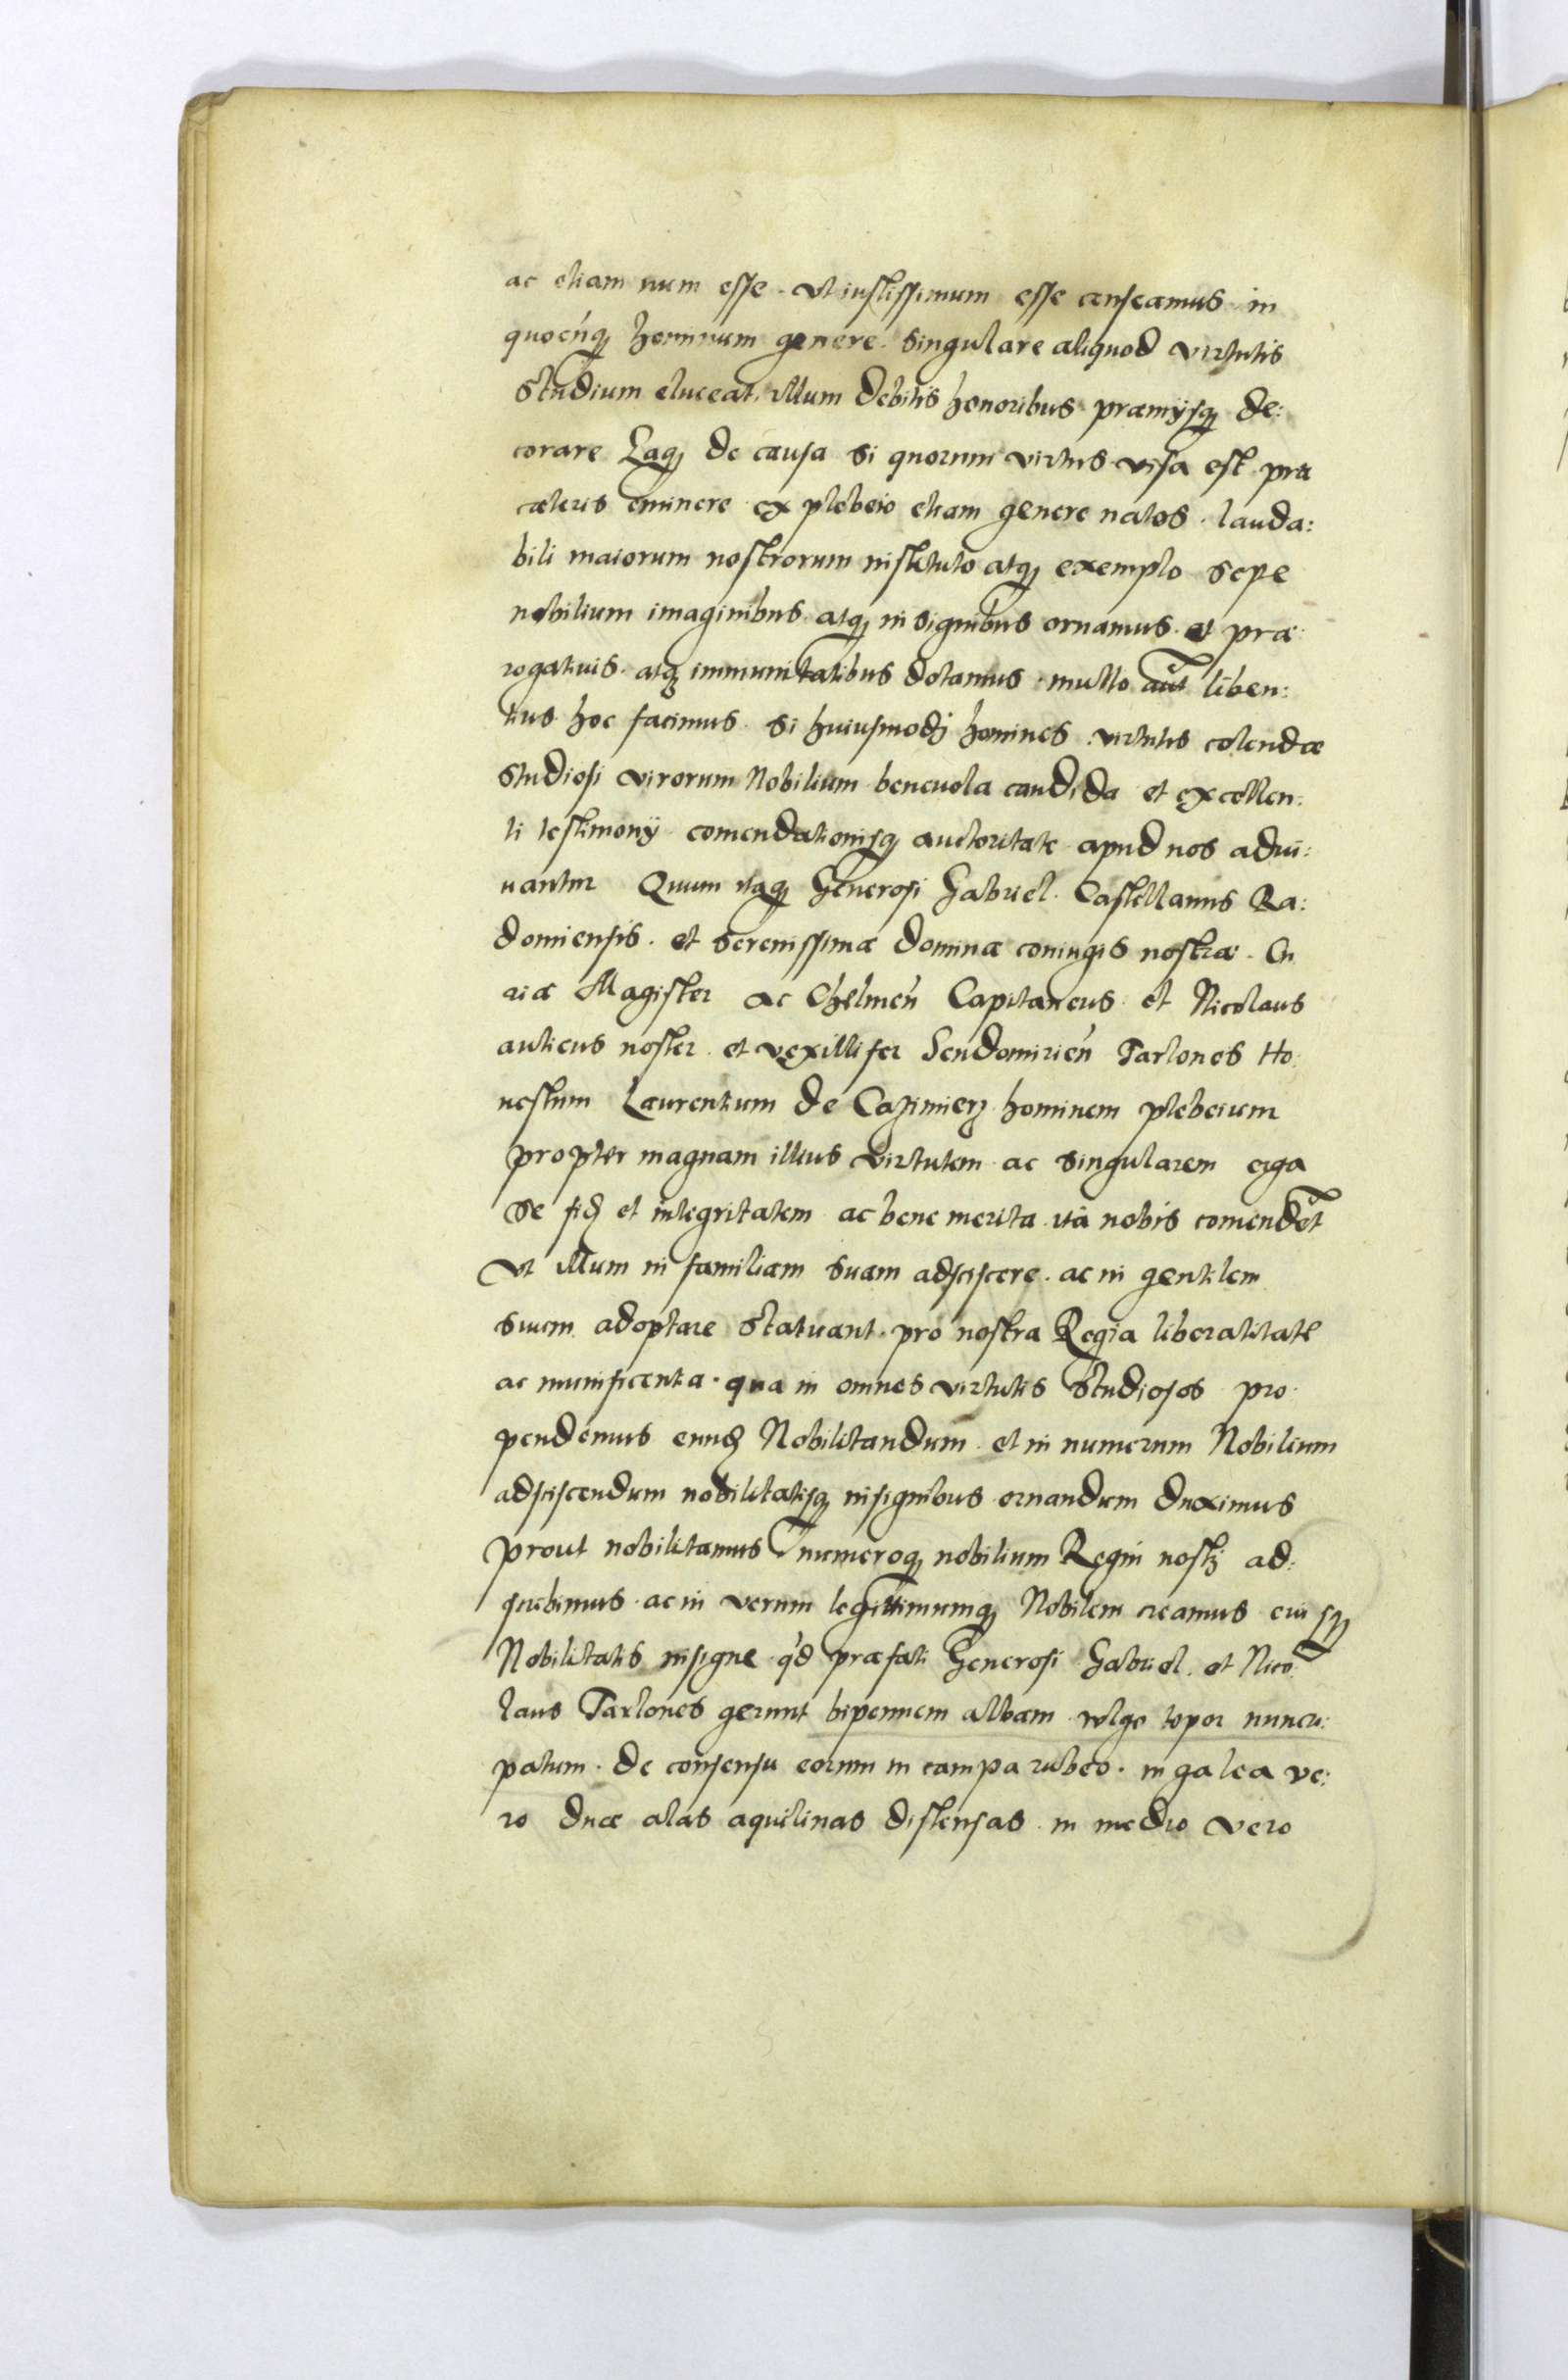 ac etiam num esse. vt iustissimum esse censeamus in
quocūq; hominum genere. singulare aliquod virtutis
studium eluceat. illum debitis honoribus praemijsq; de:
corare Eaq; de causa si quorum virtus visa est prae
caeteris eminere ex plebeio etiam genere natos. lauda:
bili maiorum nostrorum instituto atq; exemplo sepe
nobilium imaginibus atq; insignibus ornamus. et prae:
rogatiuis. atq; immunitatibus dotamus. multo aūt liben:
tius hoc facimus. si huiusmodj homines virtutis colendae
studiosi virorum Nobilium beneuola candida et excellen:
ti testimonij comendationisq; auctoritate apud nos adiu:
uantur Quum itaq; Generosi Gabriel. Castellanus Ra:
domiensis. et serenissimae dominae coniugis nostrae. Cu
riae Magister ac Chelmeñ Capitaneus et Nicolaus
aulicus noster. et vexillifer Sendomirieñ Tarlones Ho:
nestum Laurentium de Cazimierz hominem plebeium
propter magnam illius virtutem ac singularem erga
se fid; et integritatem ac bene merita ita nobis comendēt
Vt illum in familiam suam adsciscere. ac in gentilem
suum adoptare statuant. pro nostra Regia liberalitate
ac munificentia. qua in omnes virtutis studiosos pro
pendemus eund; Nobilitandum et in numerum Nobilium
adsciscendum nobilitatisq; insignibus ornandum duximus
prout nobilitamus numeroq; nobilium Regni nostrj ad:
scribimus. ac in verum legittimumq; Nobilem creamus eiusq;
Nobilitatis insigne qd praefati Generosi Gabriel. et Nico:
laus Tarlones gerunt bipennem albam vulgo topor nuncu:
patum. de consensu eorum in campa rubeo. in galea ve:
ro duae alas aquilinas distensas in medio vero